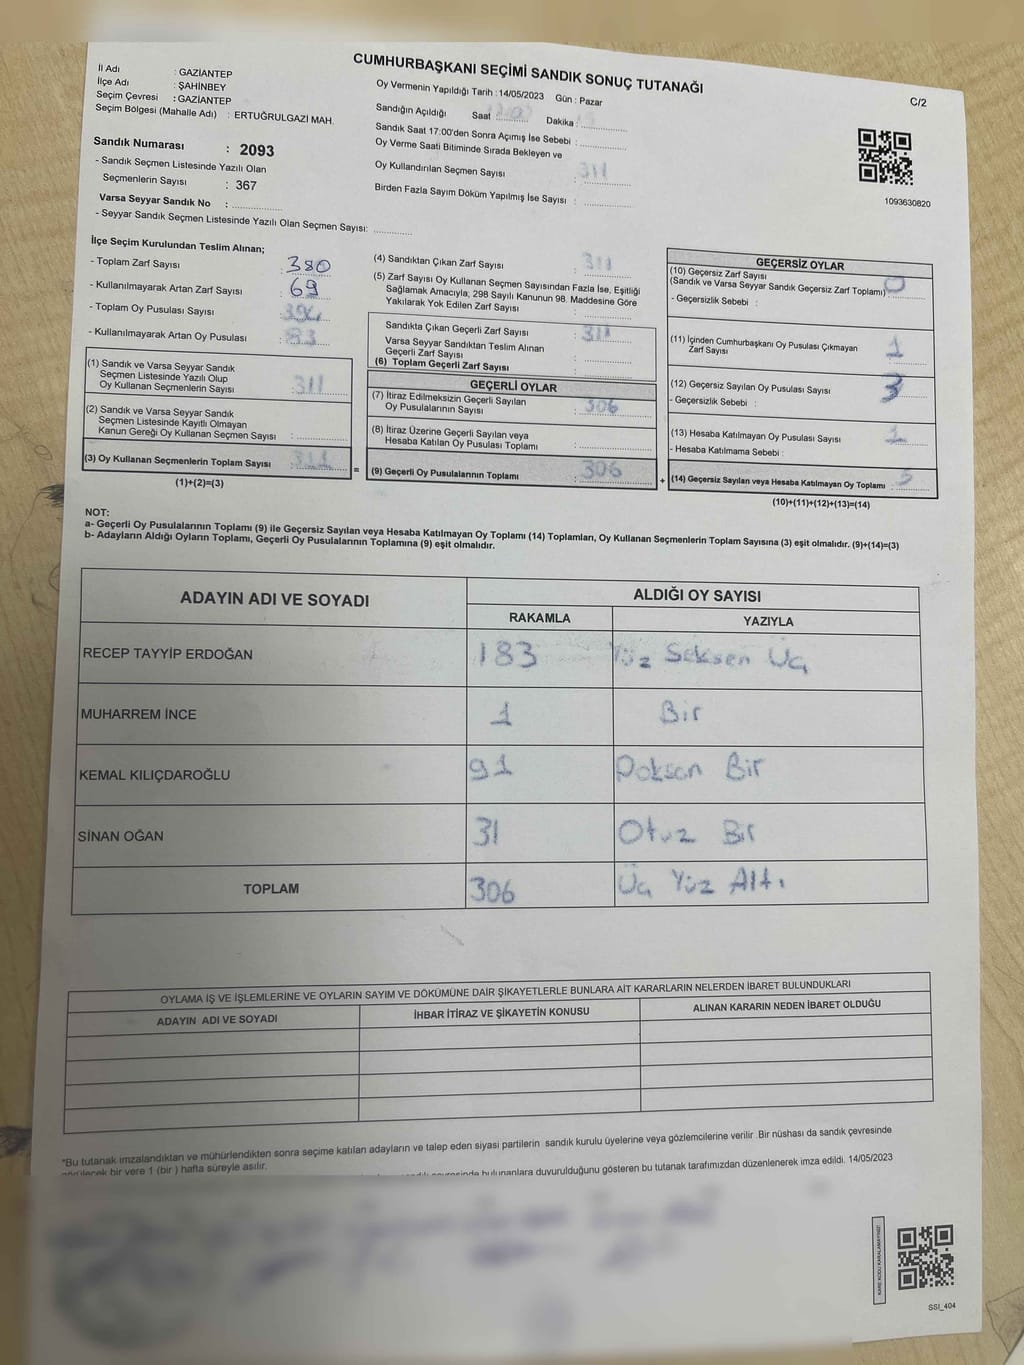 CUMHURBAŞKANI SEÇİMİ SANDIK SONUÇ TUTANAĞI
C/2
İl Adı : GAZİANTEP
İlçe Adı : ŞAHİNBEY
Seçim Çevresi : GAZİANTEP
Seçim Bölgesi (Mahalle Adı) : ERTUĞRULGAZİ MAH.
Sandık Numarası : 2093
- Sandık Seçmen Listesinde Yazılı Olan
Seçmenlerin Sayısı : 367
Varsa Seyyar Sandık No :
- Seyyar Sandık Seçmen Listesinde Yazılı Olan Seçmen Sayısı:
Oy Vermenin Yapıldığı Tarih :14/05/2023 Gün : Pazar
Sandığın Açıldığı Saat Dakika :
Sandık Saat 17:00'den Sonra Açımış İse Sebebi :
Oy Verme Saati Bitiminde Sırada Bekleyen ve
Oy Kullandırılan Seçmen Sayısı : 311
Birden Fazla Sayım Döküm Yapılmış İse Sayısı :
1093630820
İlçe Seçim Kurulundan Teslim Alınan;
- Toplam Zarf Sayısı : 380
- Kullanılmayarak Artan Zarf Sayısı : 69
- Toplam Oy Pusulası Sayısı : 394
- Kullanılmayarak Artan Oy Pusulası : 83
(1) Sandık ve Varsa Seyyar Sandık
Seçmen Listesinde Yazılı Olup
Oy Kullanan Seçmenlerin Sayısı : 311
(2) Sandık ve Varsa Seyyar Sandık
Seçmen Listesinde Kayıtlı Olmayan
Kanun Gereği Oy Kullanan Seçmen Sayısı :
(3) Oy Kullanan Seçmenlerin Toplam Sayısı : 311
(1)+(2)=(3)
=
(4) Sandıktan Çıkan Zarf Sayısı : 311
(5) Zarf Sayısı Oy Kullanan Seçmen Sayısından Fazla İse, Eşitliği
Sağlamak Amacıyla, 298 Sayılı Kanunun 98. Maddesine Göre
Yakılarak Yok Edilen Zarf Sayısı :
Sandıkta Çıkan Geçerli Zarf Sayısı : 311
Varsa Seyyar Sandıktan Teslim Alınan
Geçerli Zarf Sayısı :
(6) Toplam Geçerli Zarf Sayısı :
GEÇERLİ OYLAR
(7) İtiraz Edilmeksizin Geçerli Sayılan
Oy Pusulalarının Sayısı : 306
(8) İtiraz Üzerine Geçerli Sayılan veya
Hesaba Katılan Oy Pusulası Toplamı :
(9) Geçerli Oy Pusulalarının Toplamı : 306
+
GEÇERSİZ OYLAR
(10) Geçersiz Zarf Sayısı
(Sandık ve Varsa Seyyar Sandık Geçersiz Zarf Toplamı) : 0
- Geçersizlik Sebebi :
(11) İçinden Cumhurbaşkanı Oy Pusulası Çıkmayan
Zarf Sayısı 1
(12) Geçersiz Sayılan Oy Pusulası Sayısı 3
- Geçersizlik Sebebi :
(13) Hesaba Katılmayan Oy Pusulası Sayısı 1
- Hesaba Katılmama Sebebi :
(14) Geçersiz Sayılan veya Hesaba Katılmayan Oy Toplamı : 5
(10)+(11)+(12)+(13)=(14)
NOT:
a- Geçerli Oy Pusulalarının Toplamı (9) ile Geçersiz Sayılan veya Hesaba Katılmayan Oy Toplamı (14) Toplamları, Oy Kullanan Seçmenlerin Toplam Sayısına (3) eşit olmalıdır. (9)+(14)=(3)
b- Adayların Aldığı Oyların Toplamı, Geçerli Oy Pusulalarının Toplamına (9) eşit olmalıdır.
ADAYIN ADI VE SOYADI ALDIĞI OY SAYISI
RAKAMLA YAZIYLA
RECEP TAYYİP ERDOĞAN 183 Yüz Seksen Üç
MUHARREM İNCE 1 Bir
KEMAL KILIÇDAROĞLU 91 Doksan Bir
SİNAN OĞAN 31 Otuz Bir
TOPLAM 306 Üç Yüz Altı
OYLAMA İŞ VE İŞLEMLERİNE VE OYLARIN SAYIM VE DÖKÜMÜNE DAİR ŞİKAYETLERLE BUNLARA AİT KARARLARIN NELERDEN İBARET BULUNDUKLARI
ADAYIN ADI VE SOYADI İHBAR İTİRAZ VE ŞİKAYETİN KONUSU ALINAN KARARIN NEDEN İBARET OLDUĞU
*Bu tutanak imzalandıktan ve mühürlendikten sonra seçime katılan adayların ve talep eden siyasi partilerin sandık kurulu üyelerine veya gözlemcilerine verilir .Bir nüshası da sandık çevresinde
görülecek bir yere 1 (bir ) hafta süreyle asılır.
bulunanlara duyurulduğunu gösteren bu tutanak tarafımızdan düzenlenerek imza edildi. 14/05/2023
KARE KODU KARALAMAYINIZ!
SSI_404